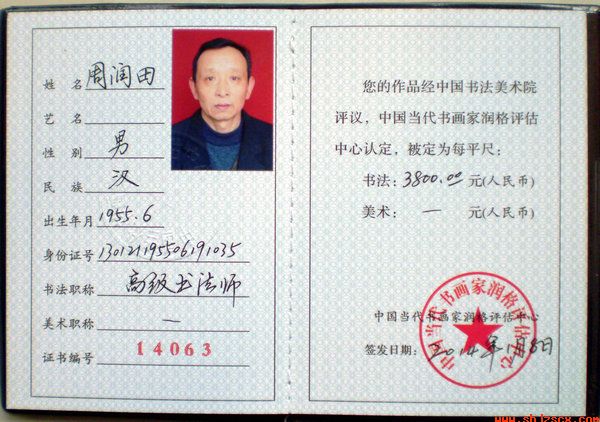 姓 名 周润田
艺 名
性 别 男
民 族 汉
出生年月 1955.6
身份证号 130121195506191035
书法职称 高级书法师
美术职称 —
证书编号 14063
您的作品经中国书法美术院
评议，中国当代书画家润格评估
中心认定，被定为每平尺：
书法：3800.00 元(人民币)
美术： — 元(人民币)
中国当代书画家润格评估中心
签发日期：2014年1月8日
中国当代书画家润格评估中心
www.sbjzscx.com